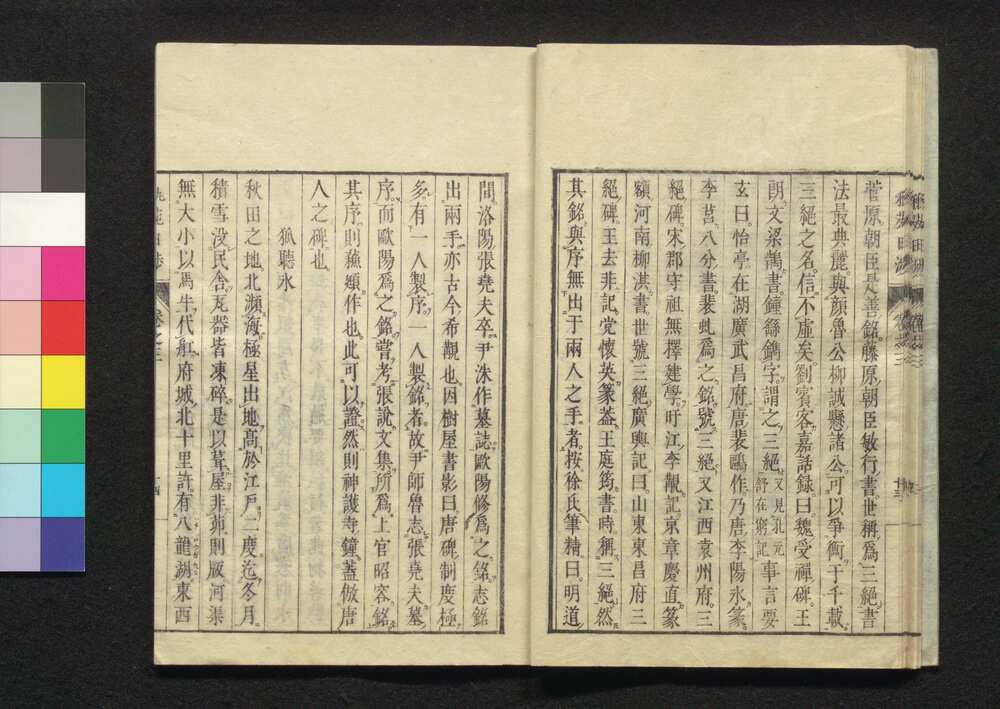 菅原朝臣是善銘藤原朝臣敏行書世稱爲三絕書
法最典麗與顏魯公柳誠懸諸公可以爭衡于千載
三絕之名信不虛矣劉賓客嘉話録曰魏受禪碑王
朗文梁鵠書鐘繇鐫字謂之三絕又見孔元舒在窮記事言要
玄曰怡亭在湖廣武昌府唐裴鷗作乃唐李陽氷篆
李莒八分書裴虬爲之銘號三絕又江西袁州府三
絕碑宋郡守祖無擇建學盱江李覯記京章慶直篆
額河南柳淇書世號三絕廣輿記曰山東東昌府三
絕碑王去非記党懷英篆葢王庭筠書時稱三絕然
其銘與序無出于兩人之手者按徐氏筆精曰明道
間洛陽張堯夫卒尹洙作墓誌歐陽修爲之銘志銘
出兩手亦古今希覯也因樹屋書影曰唐碑制度極
多有一人製序一人製銘者故尹師魯志張堯夫墓
序而歐陽爲之銘嘗考張說文集所爲上官昭容銘
其序則蘇頲作也此可以證然則神護寺鐘蓋倣唐
人之碑也
狐聽氷
秋田之地北瀕海極星出地高於江戶二度迄冬月
積雪没民舍瓦器皆凍碎是以葺屋非茆則版河渠
無大小以馬牛代舡府城北十里許有八龍湖東西